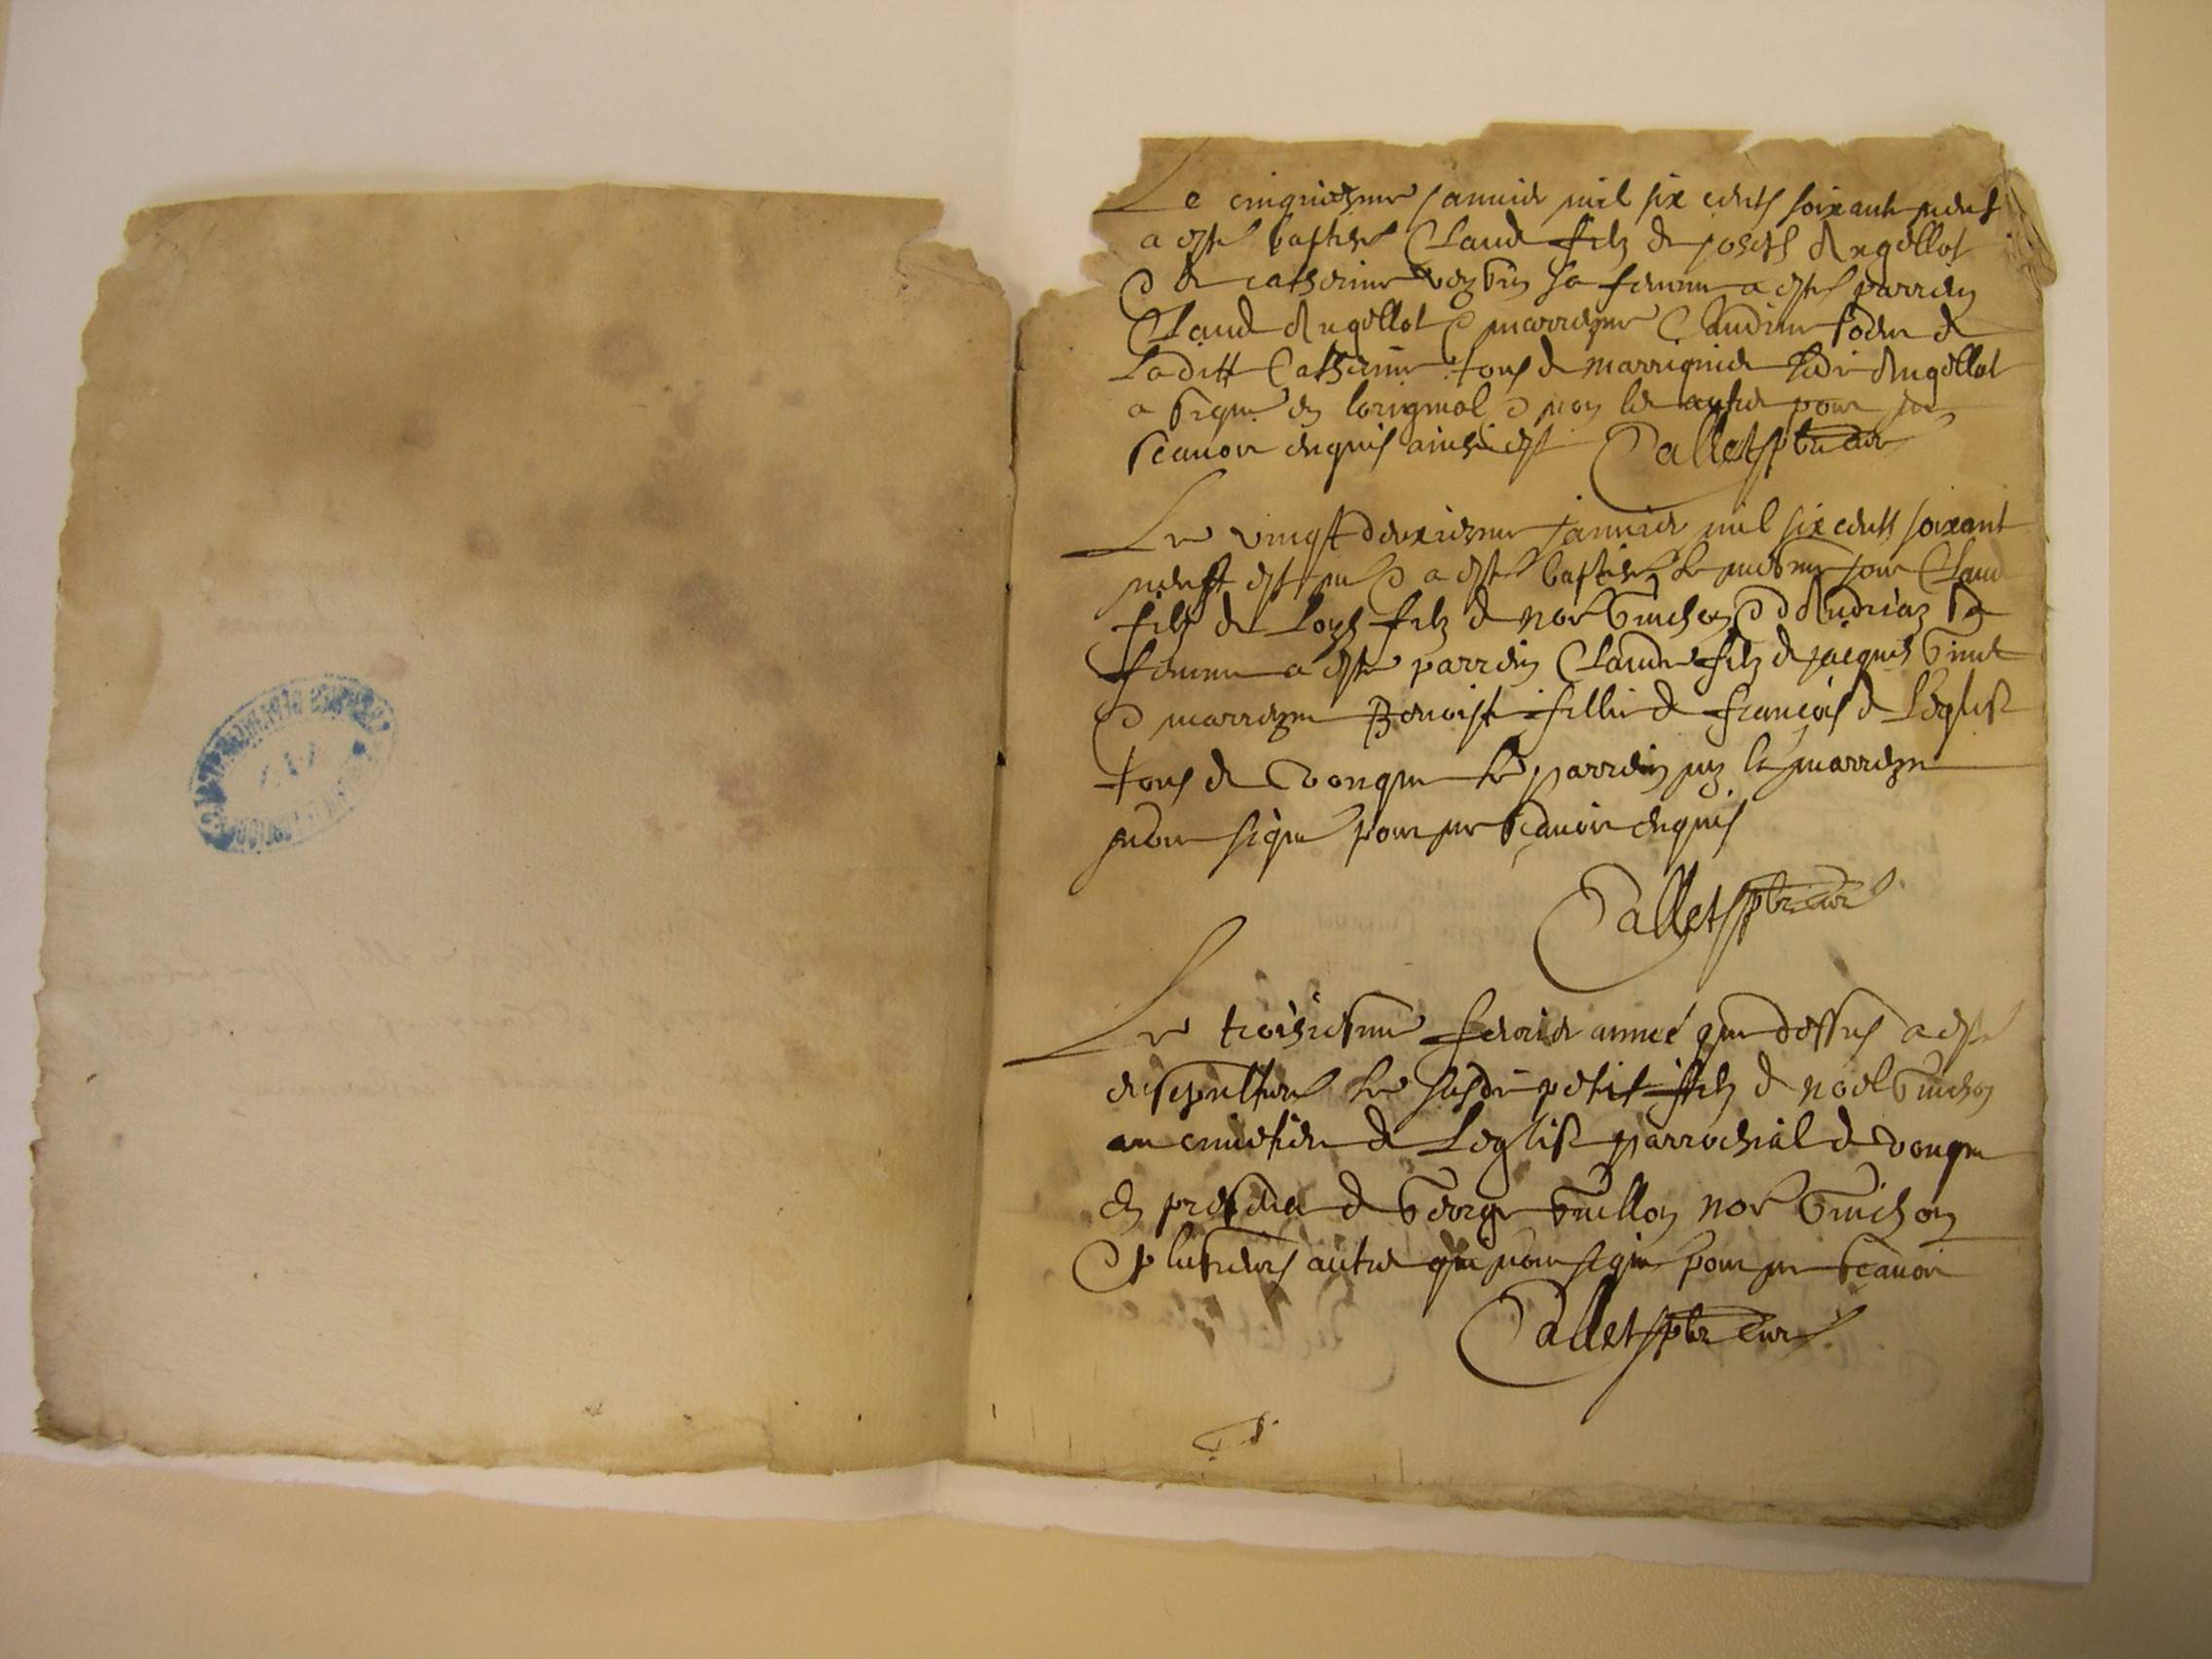 Le cinquiezme janvier mil six cents soixante neuf
a esté baptisé Claude filz de joseph Angellot
& de catherine sa femme a esté parrein
Claude Angellot & marreyne Claudine soeur de
Laditte Catherine tous de marrignieu Ledit Angellot
a signé en loriginal & non les autres pour ne
scavoir enquis ainsi est Callet ptre curé
Le vingt deuxiezme janvier mil six cents soixante
neuff est né & a esté baptisé le mesme jour Claude
filz de Loys filz de noe Guichon & d'Andriaz sa
femme a esté parrein Claude filz de jacques
& marreyne Benoiste fillie de francois de L'eglise
tous de vongne Le parrein ny la marreyne
n'ont signé pour ne scavoir enquis
Callet ptre curé
Le troisiesme febvrier année que dessus a esté
ensepulturé Le susdit petit filz de noel Guichon
au cimetiere de Leglise parrochial de vongne
En presence de George Guillon noe Guichon
& plusieurs autres qui n'ont signé pour ne scavoir
Callet ptre curé